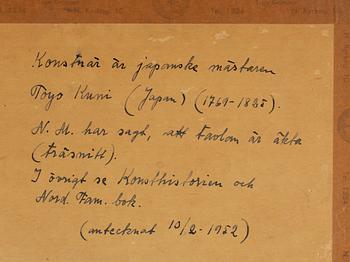 Konstnär är japanske mästaren
Toyo Kuni (Japan) (1769-1825).
N. M. har sagt, att tavlan är äkta
(träsnitt).
I övrigt se Konsthistorien och
Nord. Fam. bok.
(antecknat 10/2-1952)